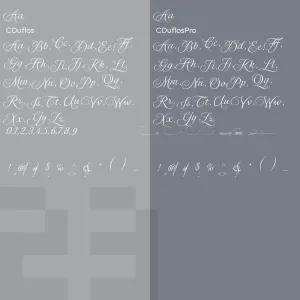 Aa
CDuflos
Aa. Bb. Cc. Dd. Ee. Ff.
Gg. Hh. Ii. Jj. Kk. Ll.
Mm. Nn. Oo. Pp. Qq.
Rr. Ss. Tt. Uu. Vv. Ww.
Xx. Yy. Zz
0.1.2.3.4.5.6.7.8.9
Aa
CDuflosPro
Aa. Bb. Cc. Dd. Ee. Ff.
Gg. Hh. Ii. Jj. Kk. Ll.
Mm. Nn. Oo. Pp. Qq.
Rr. Ss. Tt. Uu. Vv. Ww.
Xx. Yy. Zz